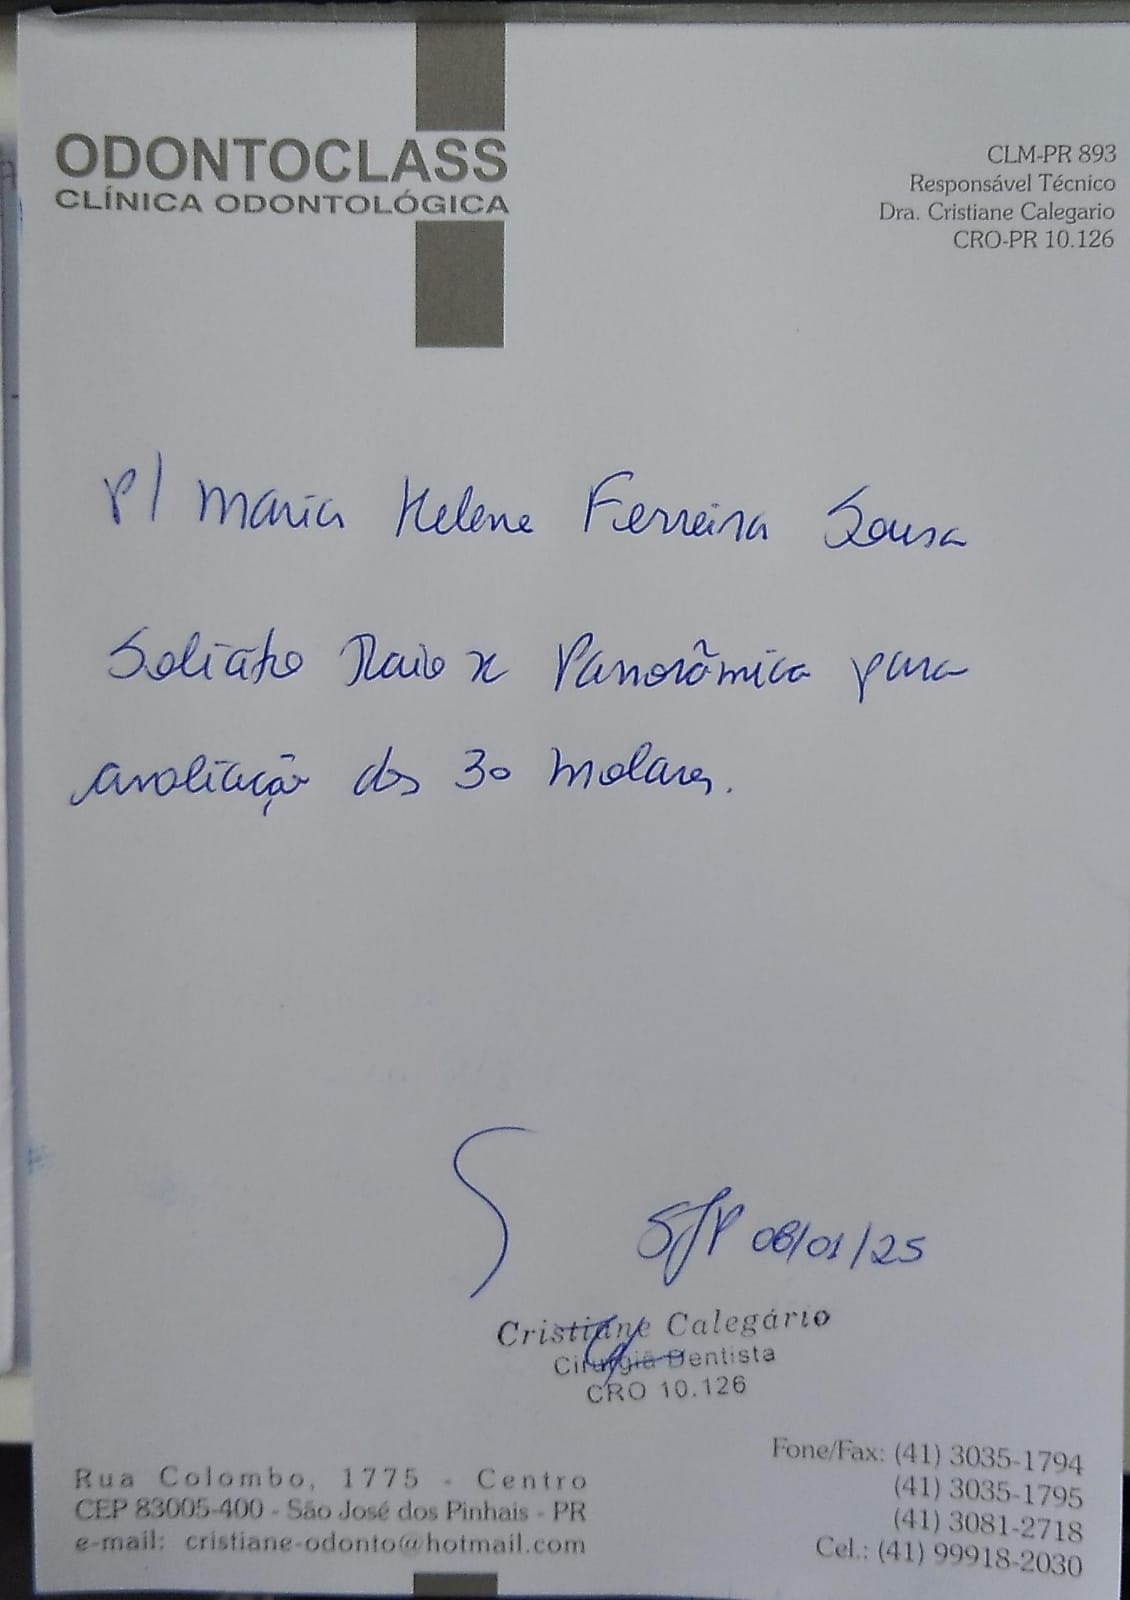 ODONTOCLASS
CLÍNICA ODONTOLÓGICA
CLM-PR 893
Responsável Técnico
Dra. Cristiane Calegario
CRO-PR 10.126
P/ Maria Helena Ferreira Sousa
Solicito Raio x Panorâmica para
avaliação dos 3o molares.
SJP 08/01/25
Cristiane Calegário
Cirurgiã Dentista
CRO 10.126
Rua Colombo, 1775 - Centro
CEP 83005-400 - São José dos Pinhais - PR
e-mail: cristiane-odonto@hotmail.com
Fone/Fax: (41) 3035-1794
(41) 3035-1795
(41) 3081-2718
Cel.: (41) 99918-2030